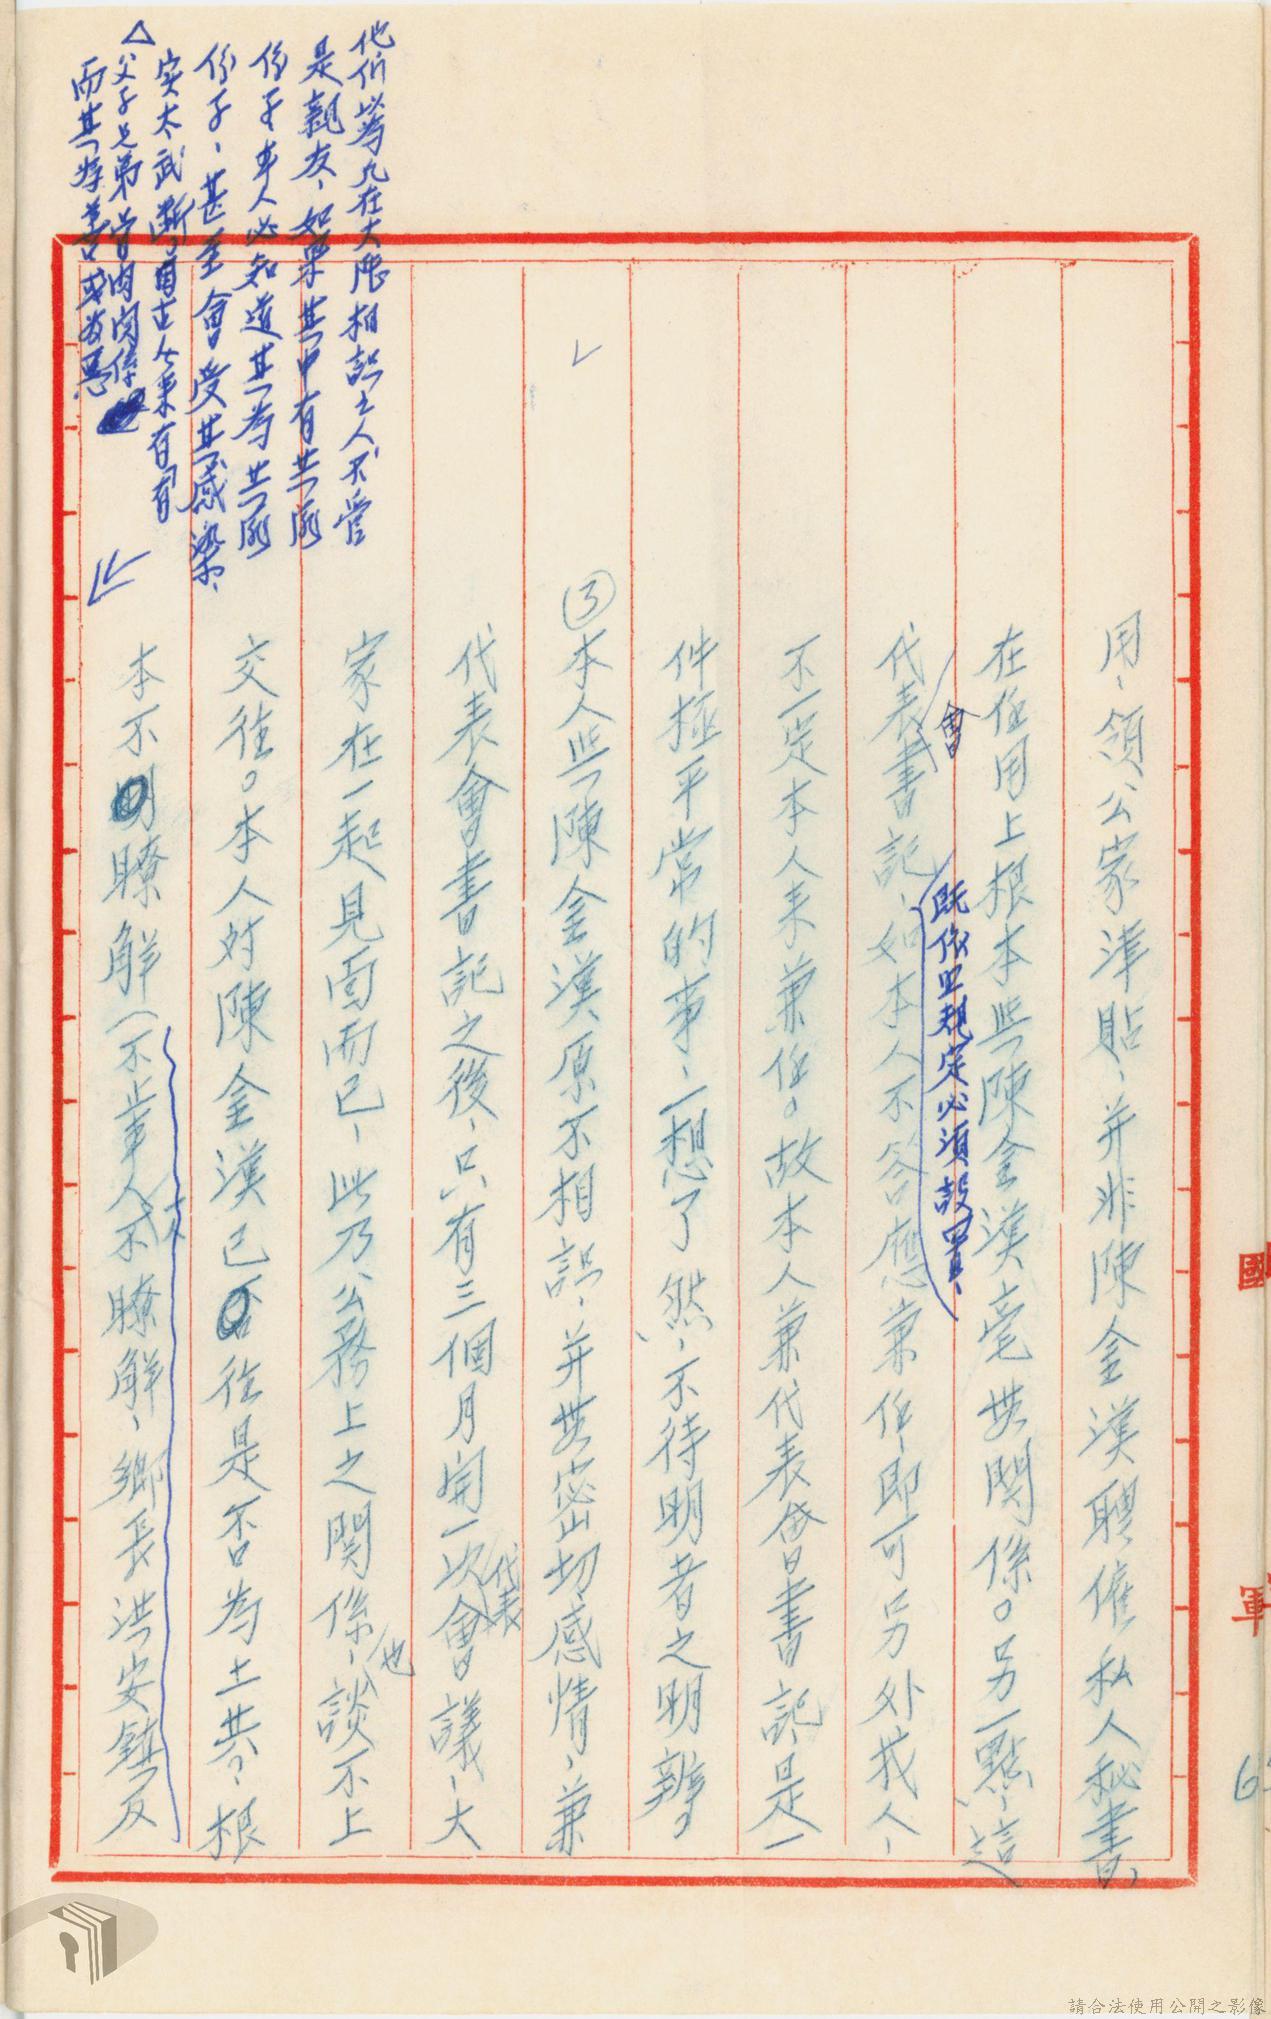 用、領公家津貼、并非陳金漢聘僱私人秘書,
在任用上根本與陳金漢毫無関係。另一點、這
代表會書記、既依照規定必須設置、如本人不答應兼任、即可另外找人、
不一定本人来兼任。故本人兼代表會書記、是一
件極平常的事、一想了然、不待明者之明辨。
③本人與陳金漢原不相認、并無密切感情、兼
代表會書記之後、只有三個月開一次代表會議、大
家在一起見面而已、此乃公務上之関係、也談不上
交往。本人对陳金漢已往是否為土共?、根
本不瞭解(不止本人不瞭解、鄉長洪安鎮及
他們以為凡在大隊相認之人不管
是親友、如果其中有共產
份子本人必知道其為共產
份子、甚至會受其感染、
実太武断、自古以来有
△父子兄弟骨肉関係
而其為善或為惡
國
軍
請合法使用公開之影像